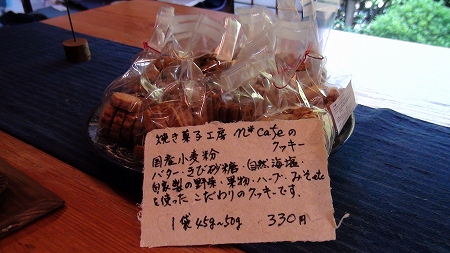 焼き菓子工房 n*cafeの
クッキー
国産小麦粉
バター・きび砂糖・自然海塩・
自家製の野菜・果物・ハーブ・みそetc
を使った こだわりのクッキーです。
1袋 45g~50g 330円